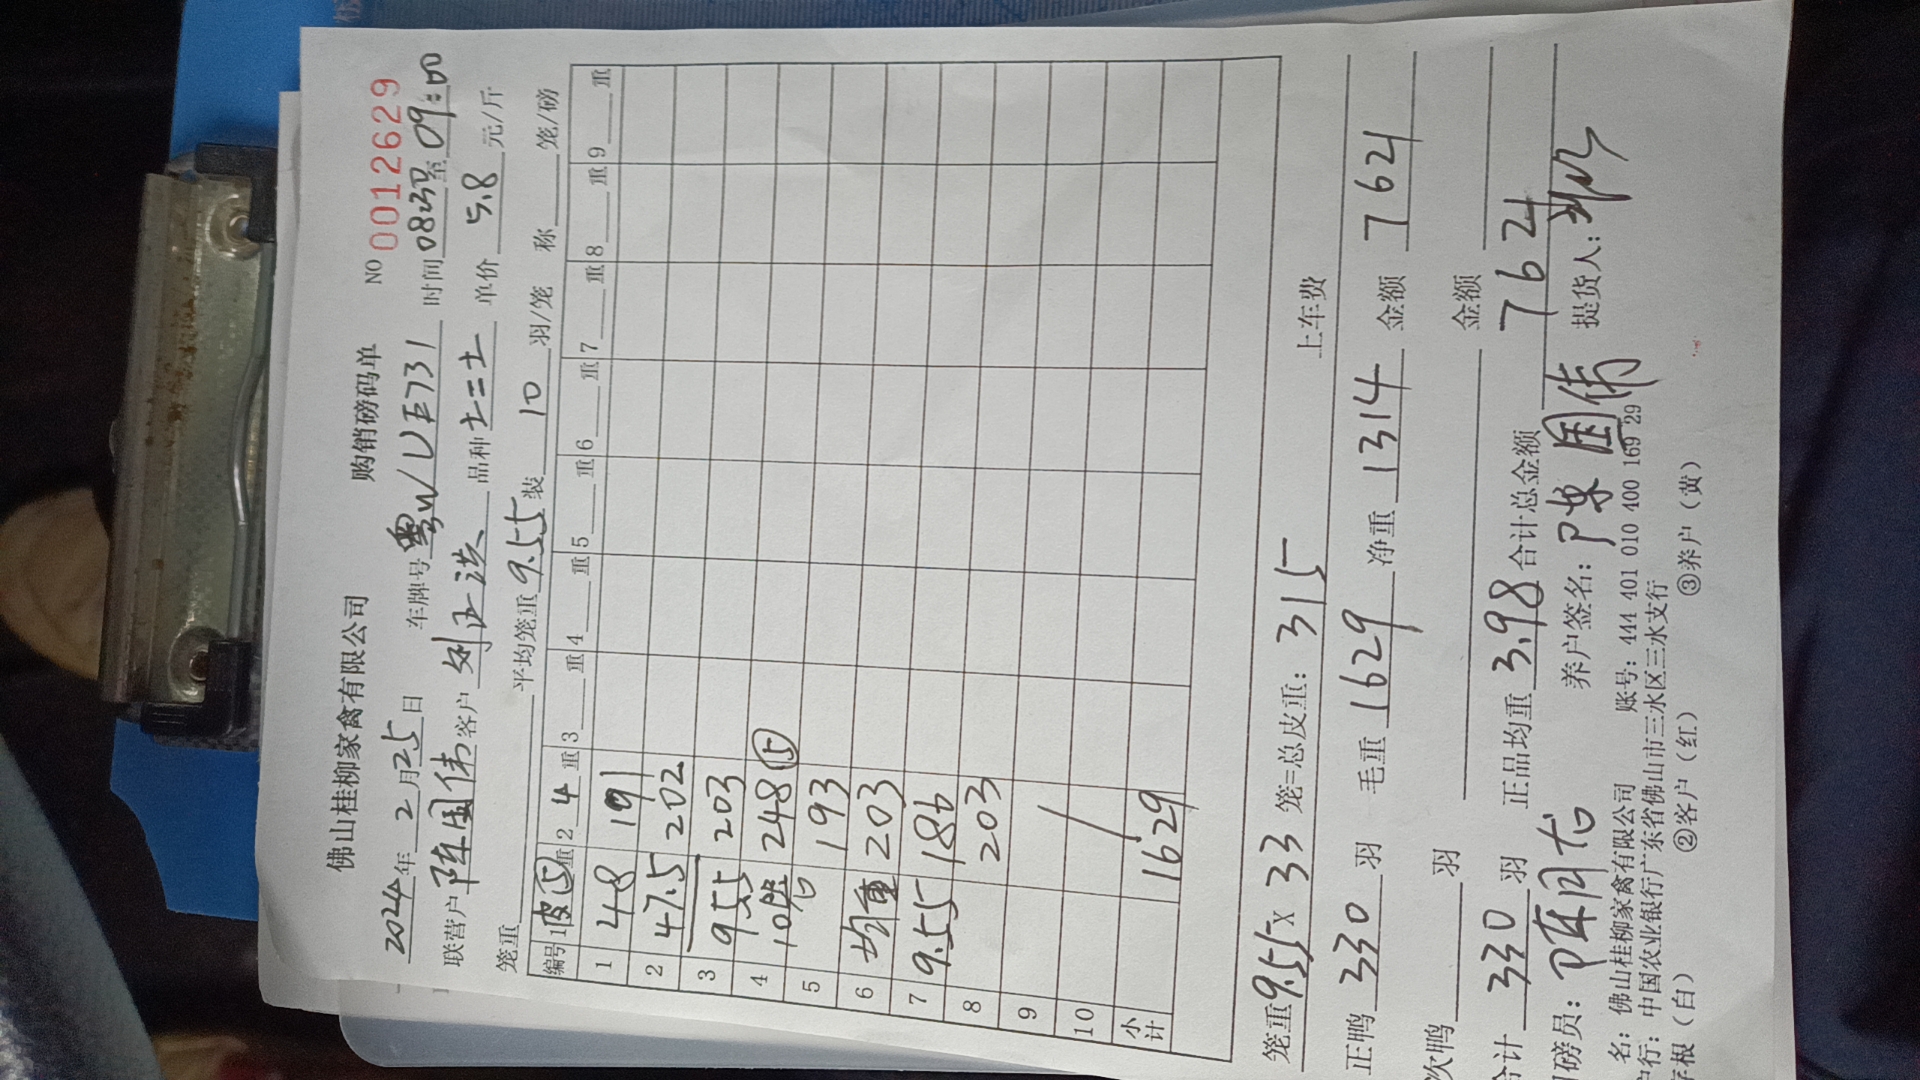 佛山桂柳家禽有限公司 购销磅码单 NO 0012629
2024年2月25日 车牌号粤WUE731 时间0830至09:00
联营户陈国伟客户刘正洪 品种土三土 单价5.8元/斤
笼重 平均笼重9.55装10羽/笼 称 笼/磅
编号 1皮⑤重 2 4重 3 重 4 重 5 重 6 重 7 重 8 重 9 重
1 48 191
2 47.5 202
3 95.5 203
4 10 248⑤
5 193
6 均重 203
7 9.55 186
8 203
9
10 /
小计 1629
笼重9.55X33笼=总皮重：315 上车费
正鸭330羽 毛重1629净重1314金额7621
次鸭 羽 金额
合计330羽 正品均重3.98合计总金额7621
司磅员： 养户签名：陈国伟 提货人：
名：佛山桂柳家禽有限公司 账号：444 401 010 400 169 29
户行：中国农业银行广东省佛山市三水区三水支行
存根（白） ②客户（红） ③养户（黄）